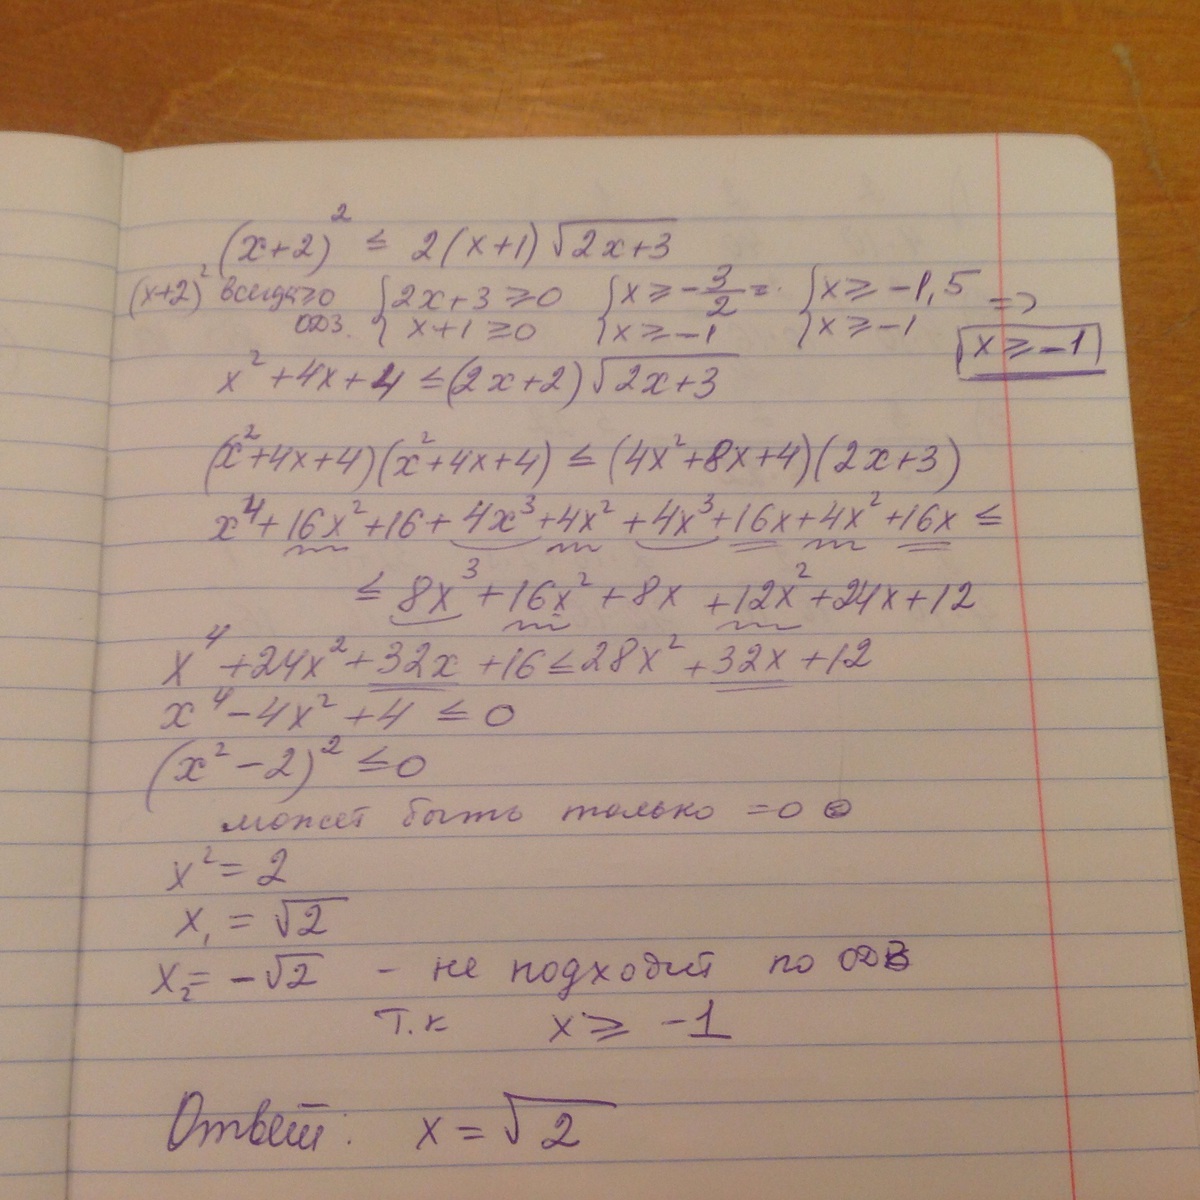 (x+2)² ≤ 2(x+1)√(2x+3)
(x+2)² всегда ≥0 {2x+3≥0 {x≥-3/2 = {x≥-1,5 =>
ОДЗ. x+1≥0 x≥-1 x≥-1 x≥-1
x²+4x+4 ≤(2x+2)√(2x+3)
(x²+4x+4)(x²+4x+4) ≤ (4x²+8x+4)(2x+3)
x⁴+16x²+16+4x³+4x²+4x³+16x+4x²+16x ≤
≤ 8x³+16x²+8x+12x²+24x+12
x⁴+24x²+32x+16≤28x²+32x+12
x⁴-4x²+4≤0
(x²-2)²≤0
может быть только =0
x²=2
x₁=√2
x₂=-√2 - не подходит по ОДЗ
т.к x≥-1
Ответ: x=√2